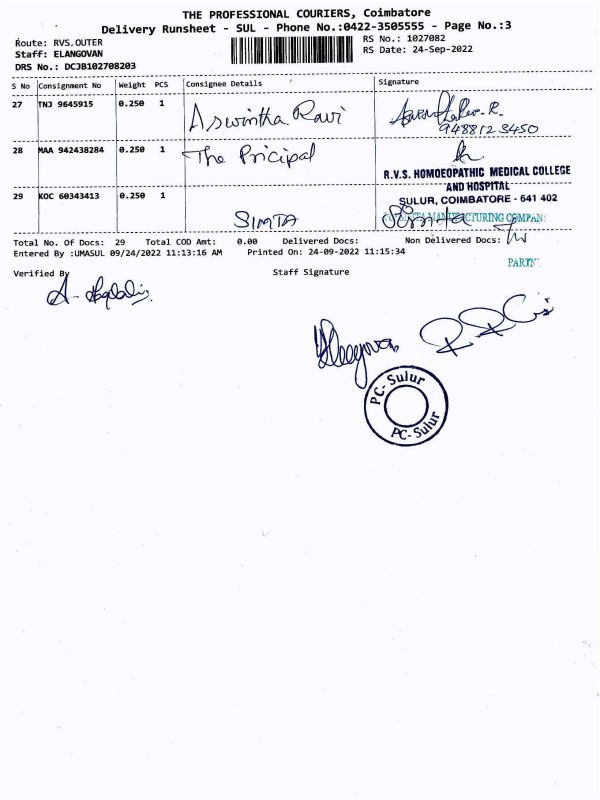 THE PROFESSIONAL COURIERS, Coimbatore
Delivery Runsheet - SUL - Phone No.:0422-3505555 - Page No.:3
Route: RVS,OUTER
RS No.: 1027082
Staff: ELANGOVAN
RS Date: 24-Sep-2022
DRS No.: DCJB102708203
S No Consignment No Weight PCS Consignee Details Signature
27 TNJ 9645915 0.250 1 Aswintha Ravi
9488123450
28 MAA 942438284 0.250 1 The Pricipal
R.V.S. HOMOEOPATHIC MEDICAL COLLEGE
AND HOSPITAL
SULUR, COIMBATORE - 641 402
29 KOC 60343413 0.250 1 SIMTA
MANUFACTURING COMPANY
Total No. Of Docs: 29 Total COD Amt: 0.00 Delivered Docs: Non Delivered Docs:
Entered By :UMASUL 09/24/2022 11:13:16 AM Printed On: 24-09-2022 11:15:34
Verified By Staff Signature
PC- Sulur
PC- Sulur